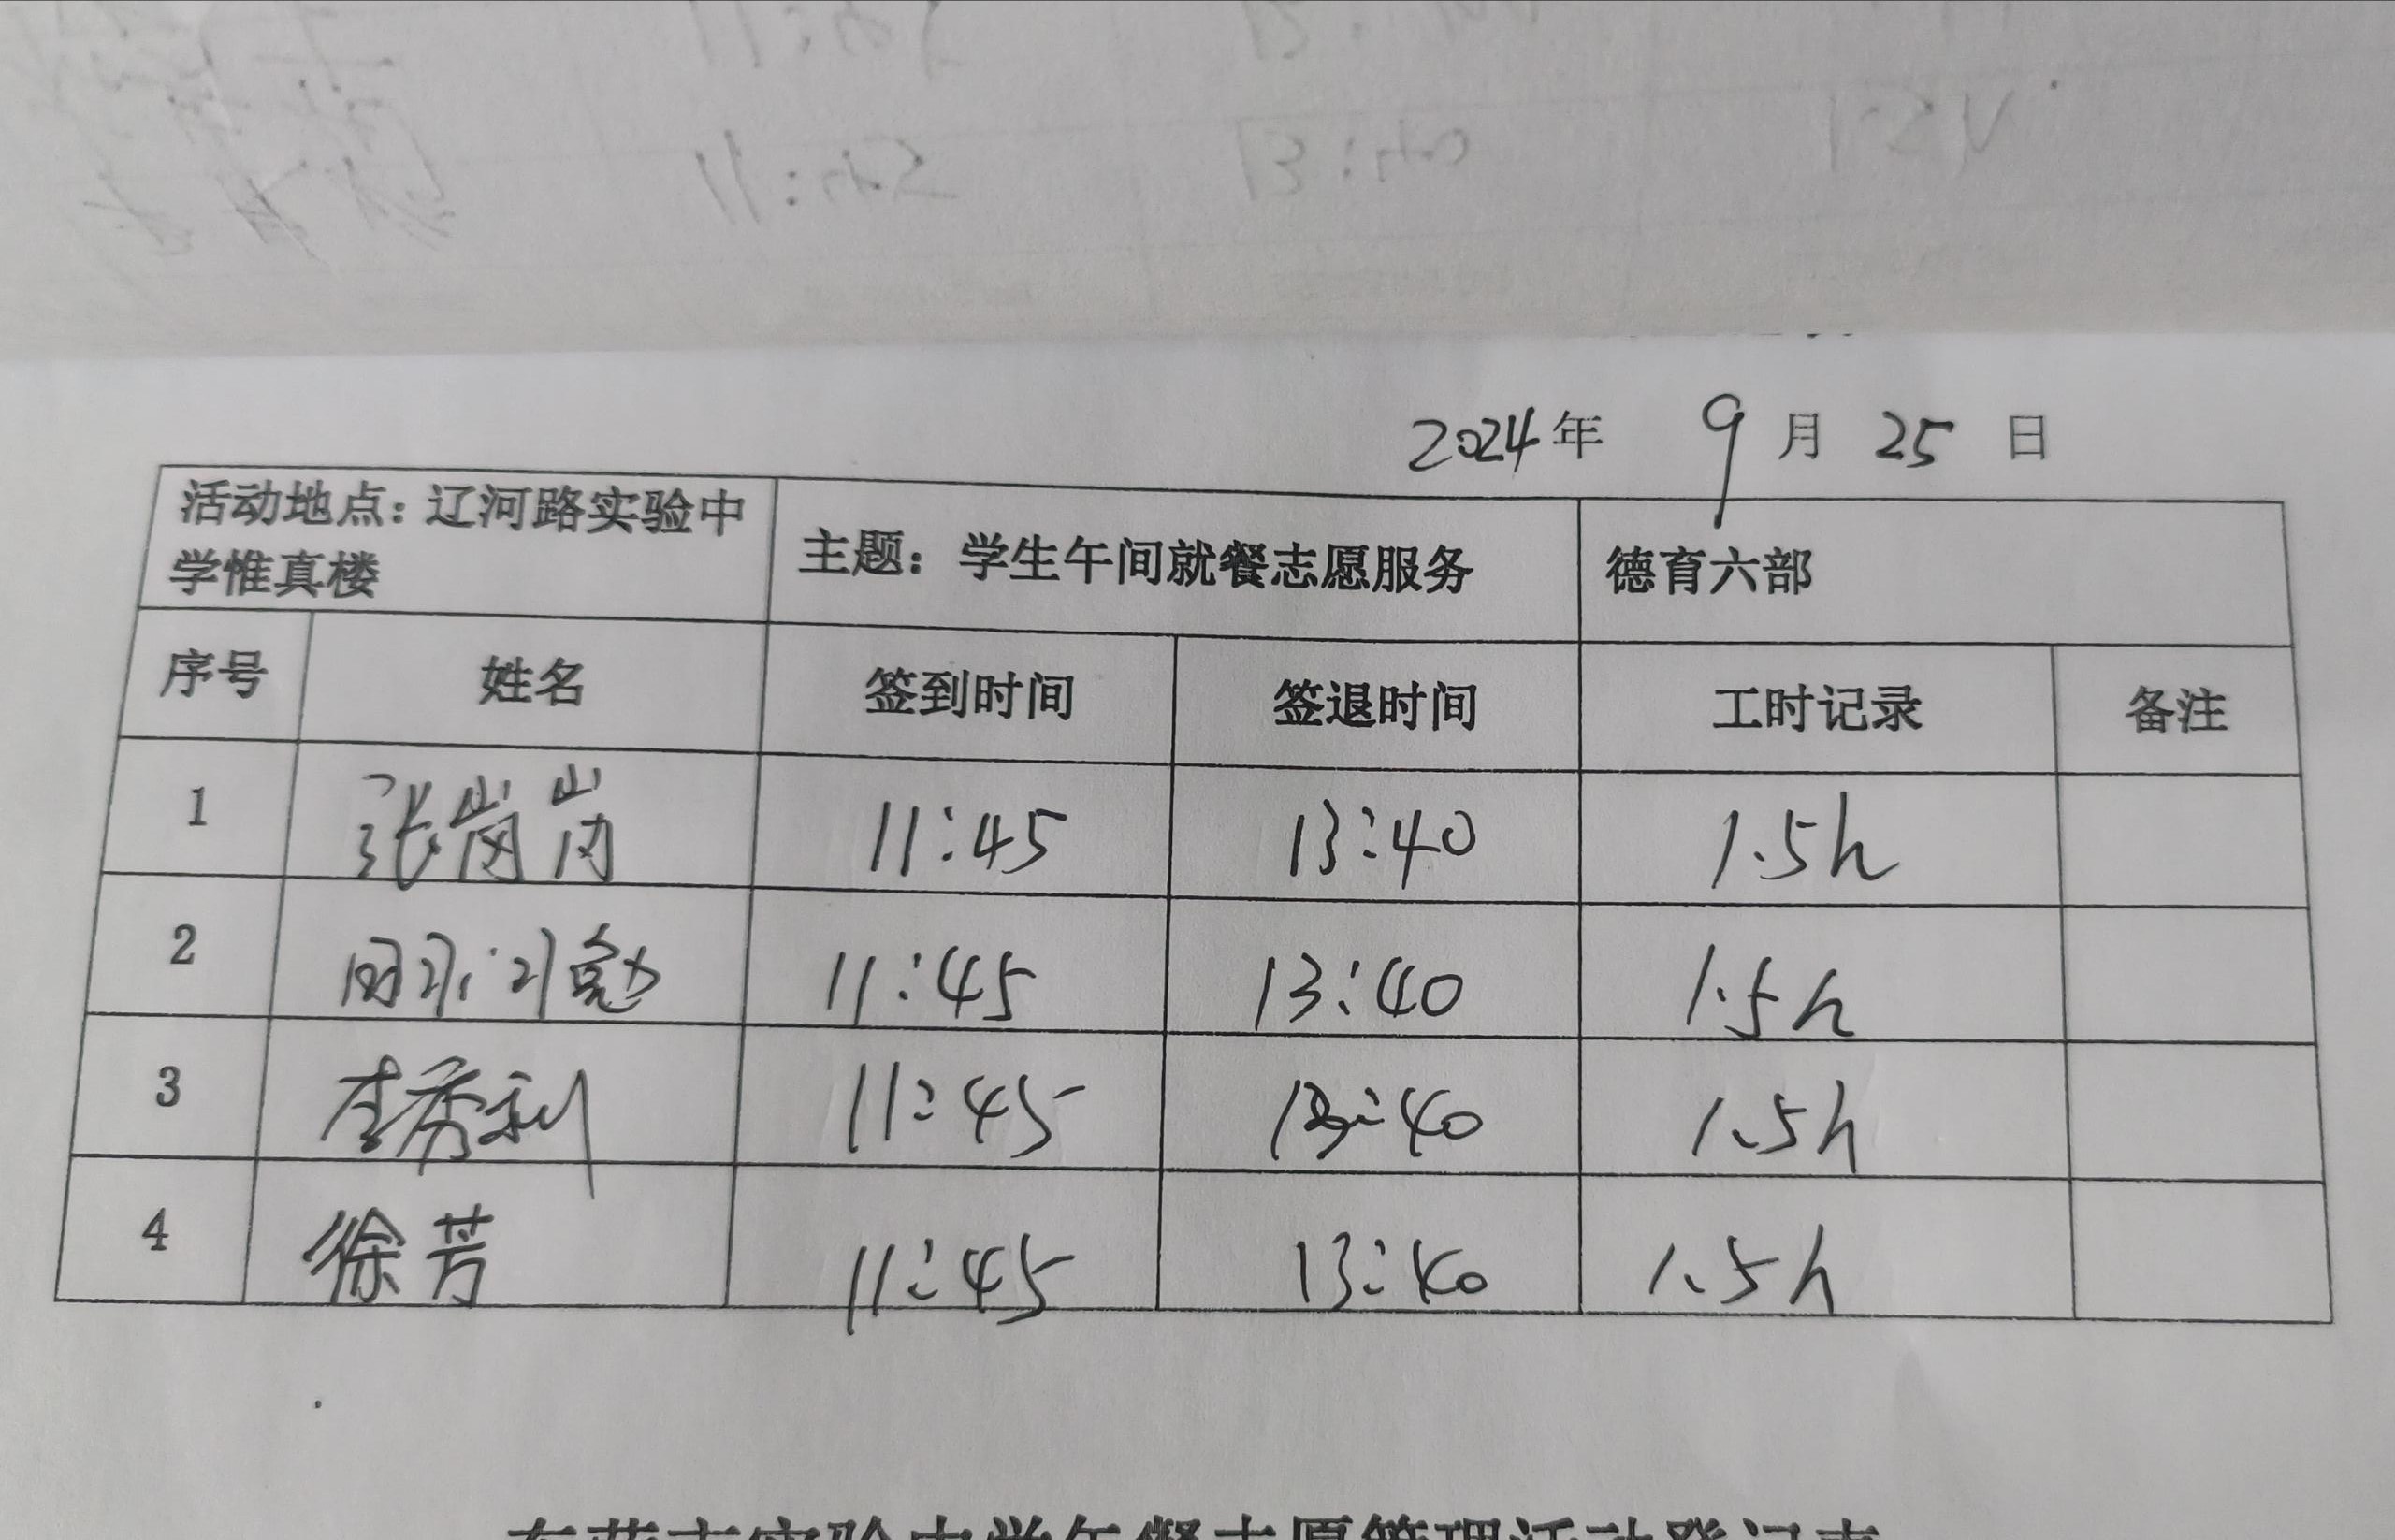 2024年 9月 25日
活动地点：辽河路实验中
学惟真楼
主题：学生午间就餐志愿服务
德育六部
序号 姓名 签到时间 签退时间 工时记录 备注
1 张岗岗 11:45 13:40 1.5h
2 11:45 13:40 1.5h
3 李秀利 11:45 13:40 1.5h
4 徐芳 11:45 13:40 1.5h